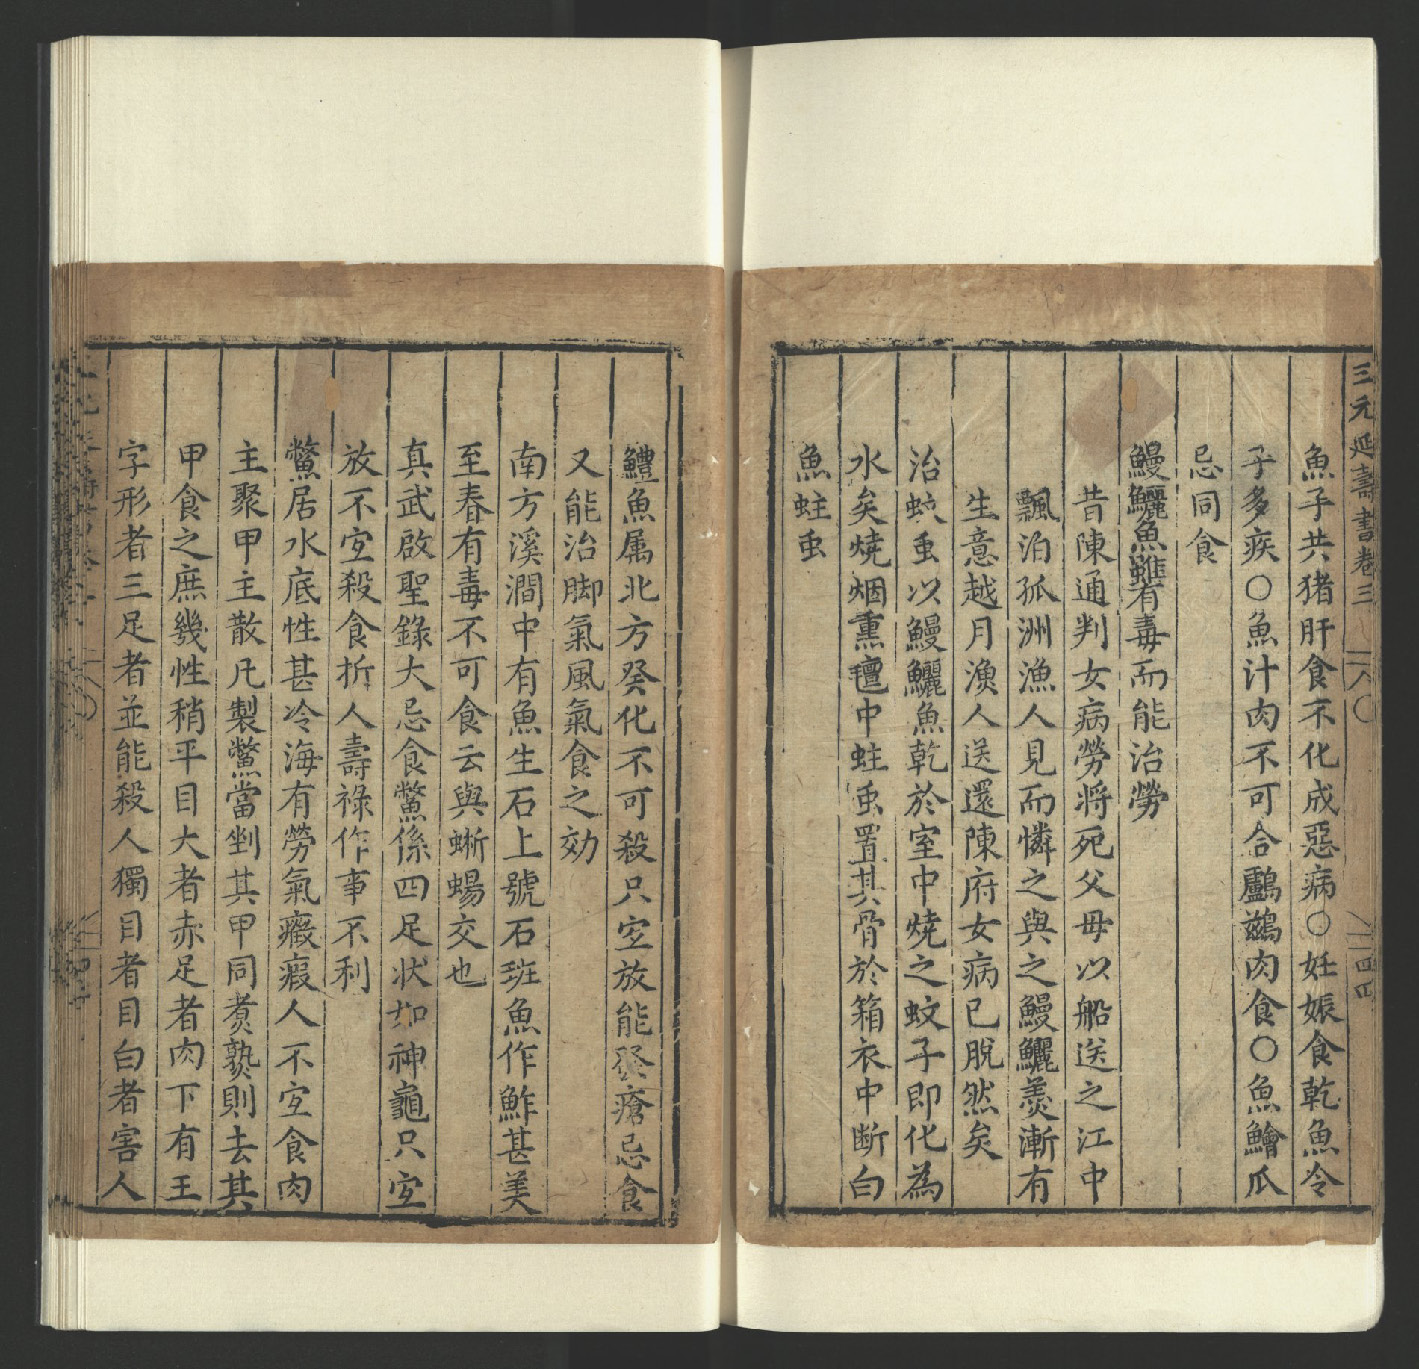 三元延壽書卷三
魚子共猪肝食不化成惡病〇妊娠食乾魚令
子多疾〇魚汁肉不可合鸕鷀肉食〇魚鱠瓜
忌同食
鰻鱺魚雖有毒而能治勞
昔陳通判女病勞将死父母以船送之江中
飄泊孤洲漁人見而憐之與之鰻鱺羮漸有
生意越月漁人送還陳府女病已脫然矣
治蚊䖝以鰻鱺魚乾於室中燒之蚊子即化為
水矣燒烟熏氊中蛀䖝置其骨於箱衣中断白
魚蛀䖝
鱧魚属北方癸化不可殺只宐放能發瘡忌食
又能治脚氣風氣食之効
南方溪澗中有魚生石上號石班魚作鮓甚美
至春有毒不可食云與蜥蜴交也
真武啟聖錄大忌食鱉係四足状如神龜只宐
放不宐殺食折人壽祿作事不利
鱉居水底性甚冷海有勞氣癥瘕人不宐食肉
主聚甲主散凡製鱉當剉其甲同煑熟則去其
甲食之庶幾性稍平目大者赤足者肉下有王
字形者三足者並能殺人獨目者目白者害人